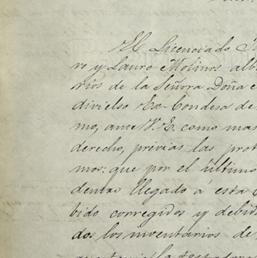 El Licenciado
ro y Lauro Molinos alb
rios de la Señora Doña
divielso Ex-Condesa de
mo, ante V.E. como mas
derecho, previas las prot
mos: que por el último
dente llegado á esta
bido corregidos y debid
dos los inventarios de